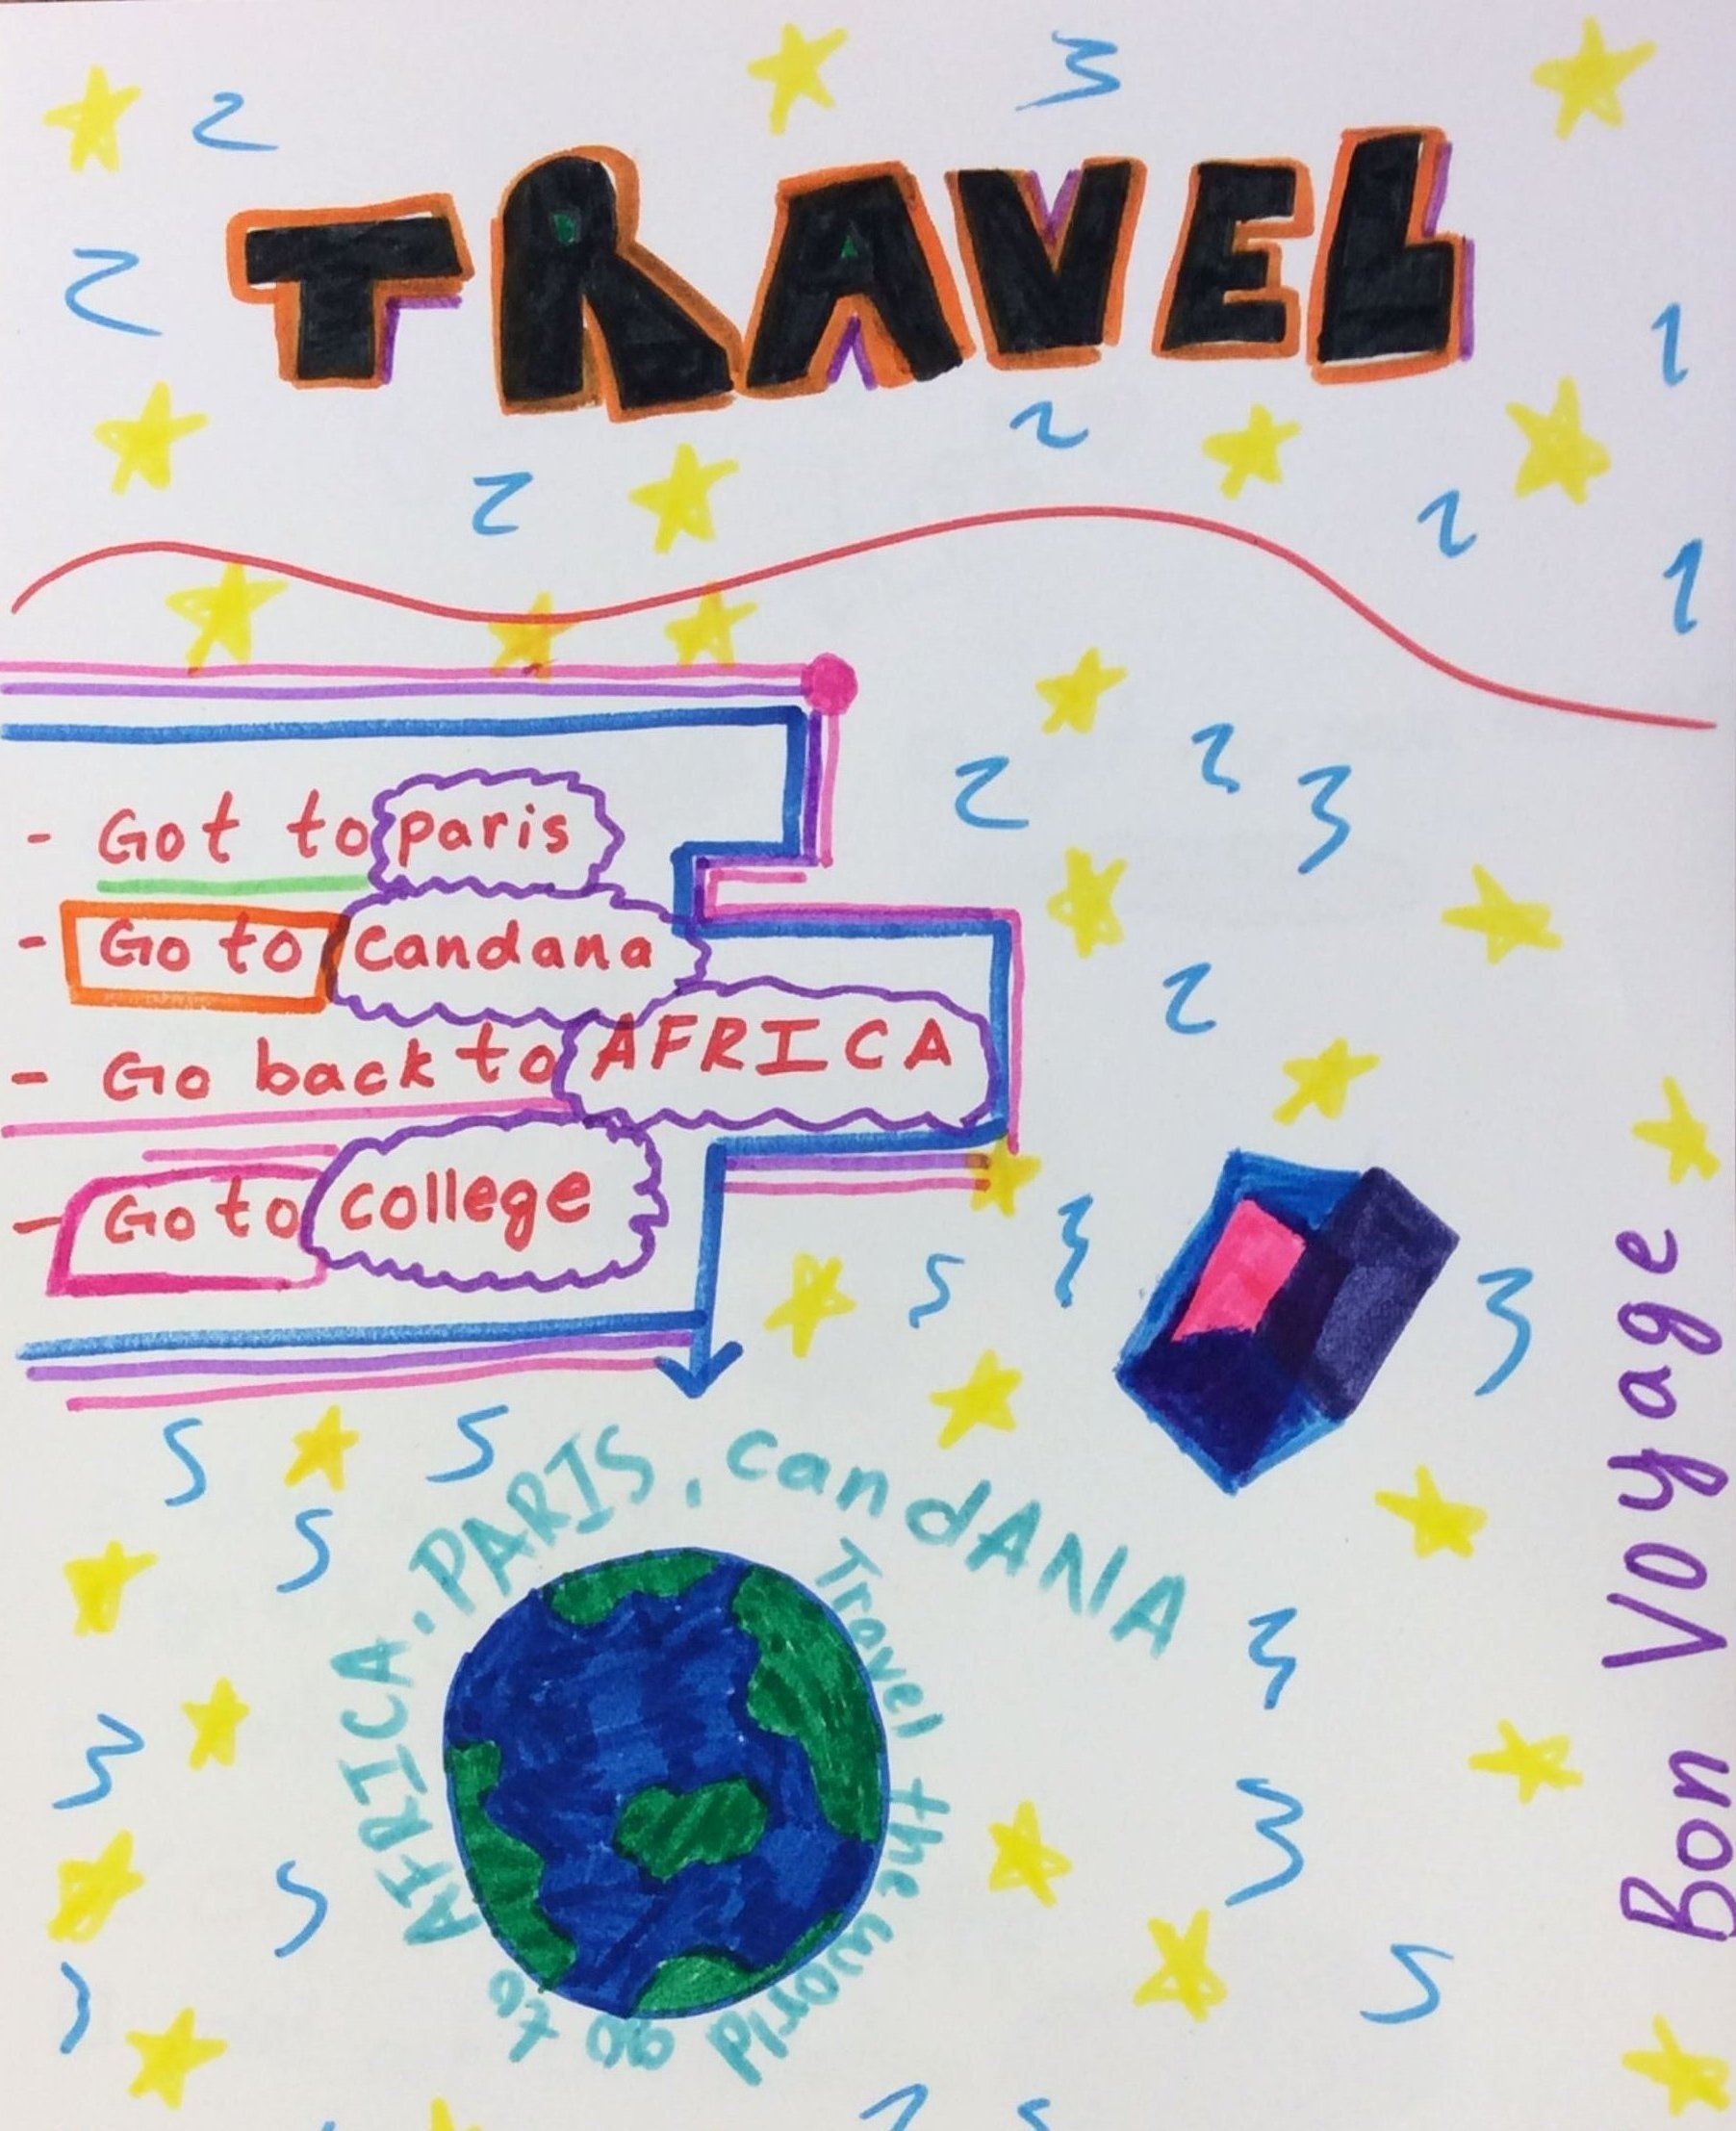 TRAVEL
- Got to paris
- Go to candana
- Go back to AFRICA
- Go to college
Travel the world go to AFRICA. PARIS, candANA
Bon Voyage